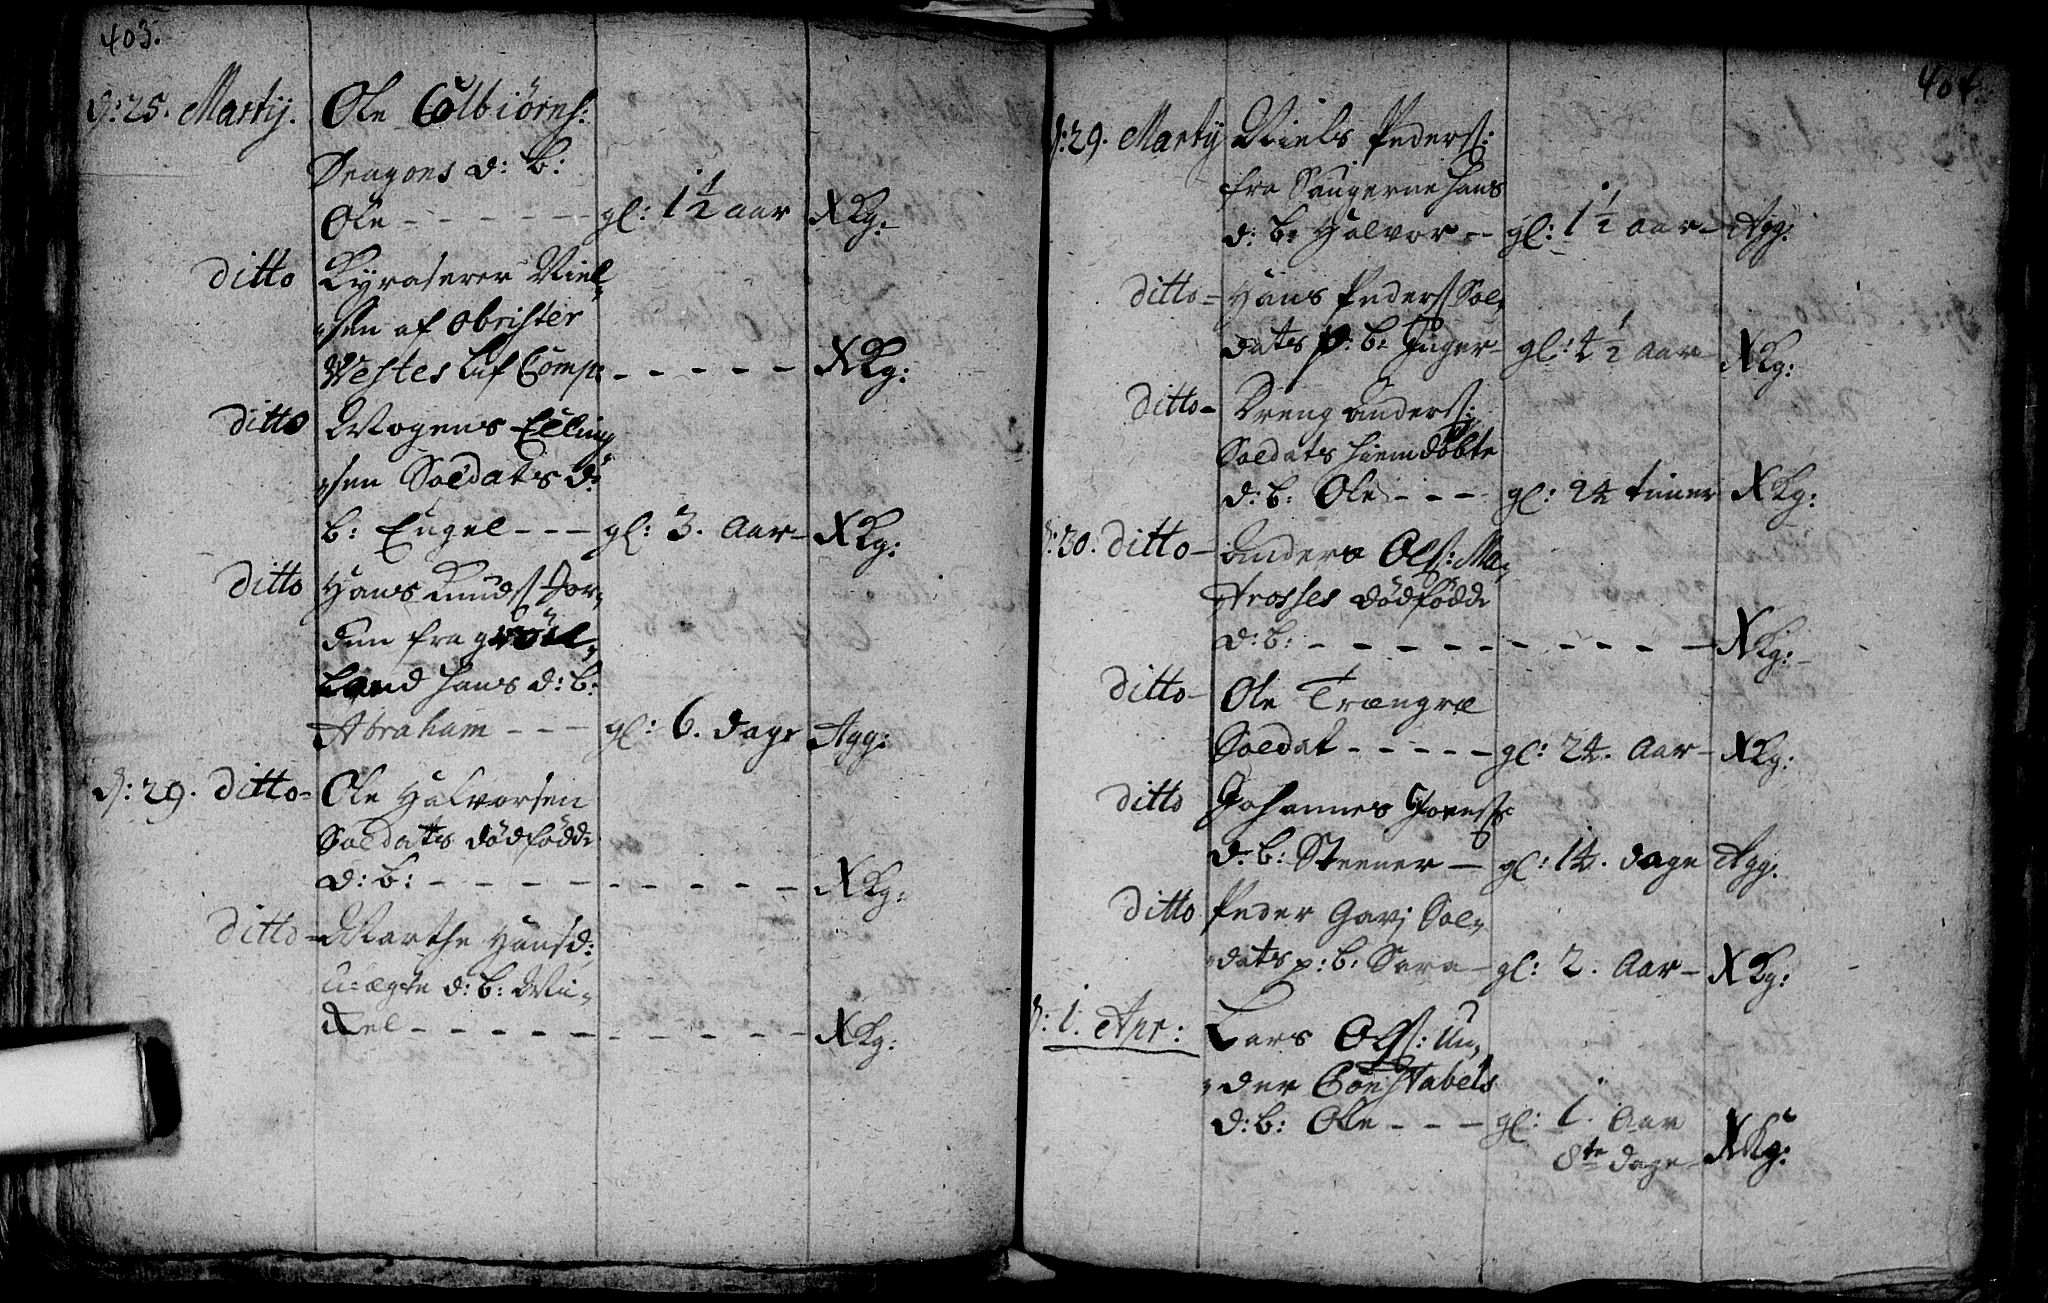 403.
d: 25. Martij. Ole Colbiörns:
Dragons d: b:
Ole - - - - - - gl: 1½ aar XKg:
ditto Kyraserer Niel„
„sen af Obrister
Westes Lif Comp: - - - - - XKg:
ditto Mogens Elling„
„sen Soldats d:
b: Engel - - - gl: 3. Aar- XKg:
ditto Hans Knuds: For„
den fra
Land hans d: b:
Abraham - - - gl: 6. dage Agg:
d: 29. ditto- Ole Halvorsen
Soldats dödfödde
d: b: - - - - - - - - - - XKg:
ditto- Marthe Hansd:
U-ægte d: b: Mi„
kel - - - - - - - - - - - XKg:
404.
d: 29. Martij Niels Peders:
fra Saugerne hans
d: b: Halvor - - gl: 1½ aar- Agg:
ditto- Hans Peders: Sol„
dats p: b: Inger- gl: 4½ aar- XKg:
ditto- Dreng Anders:
Soldats hiemdöbte
d: b: Ole - - - gl: 24 timer XKg:
d: 30. ditto- Anders Ols: Ma„
trosses dödfödde
d: b: - - - - - - - - - - - XKg:
ditto- Ole Trængræ
Soldat - - - - - gl: 24. Aar- XKg:
ditto Johannes
d: b: Steener - gl: 14. dage Agg:
ditto Peder Gavj Sol„
„dats p: b: Sara- gl: 2. Aar- XKg:
d: 1. Apr: Lars Ols: Un„
„der Constabels
d: b: Ole - - - gl: 1. Aar
8te dage- XKg: